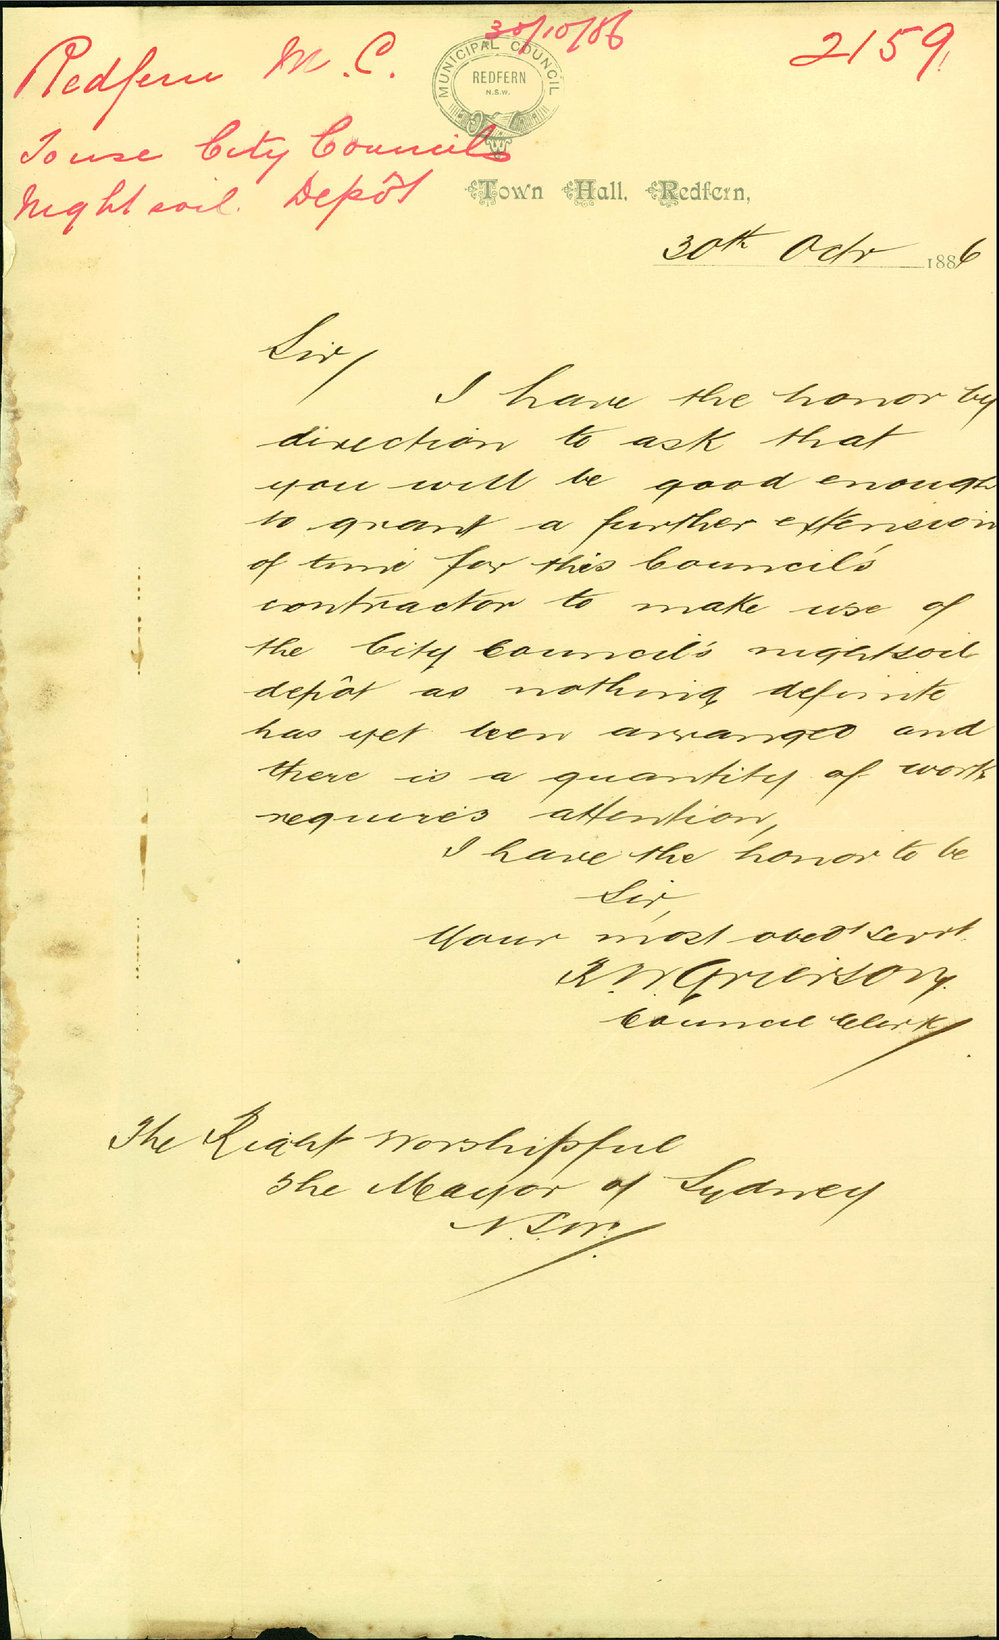 30/10/86
2159
Redfern M. C.
To use City Councils
Nightsoil Depôt
MUNICIPAL COUNCIL
REDFERN
N.S.W.
Town Hall, Redfern,
30th Octr 1886
Sir,
I have the honor by
direction to ask that
you will be good enough
to grant a further extension
of time for this Council's
contractor to make use of
the City Council's nightsoil
depôt as nothing definite
has yet been arranged and
there is a quantity of work
requires attention,
I have the honor to be
Sir,
Your most obedt servt.
R. W. Grierson
Council Clerk
The Right Worshipful
The Mayor of Sydney
N.S.W.